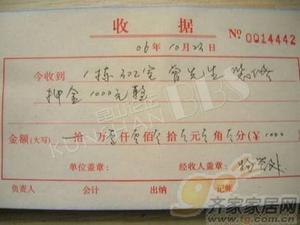 收 据
№ 0014442
06年 10月23日
今收到 1栋302室 曾先生 装修
押金 1000元整
金额(大写) 拾 万 壹仟零佰 拾 元 角 分(¥ 1000
单位盖章: 经收人盖章:
负责人 会计 出纳 记账
昆山论坛
KUNSHAN BBS
齐家家居网
www.tg.com.cn